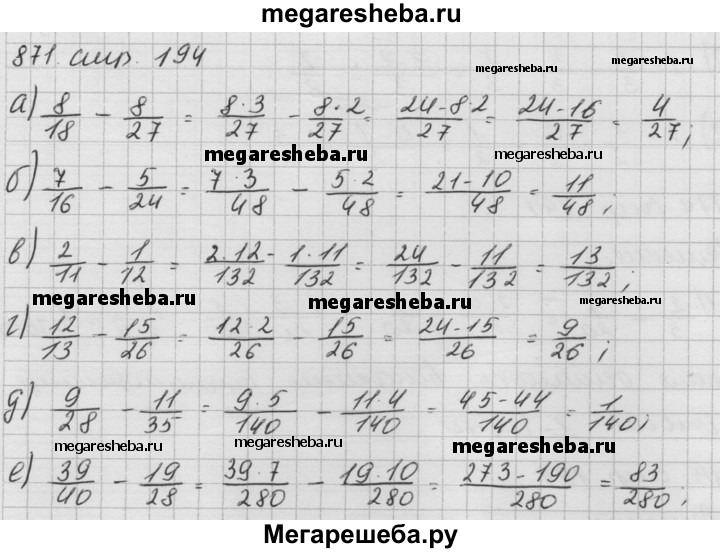 megaresheba.ru
871. стр. 194
megaresheba.ru
а) 8/18 - 8/27 = 8·3/27 - 8·2/27 = 24-8·2/27 = 24-16/27 = 4/27;
megaresheba.ru megaresheba.ru
б) 7/16 - 5/24 = 7·3/48 - 5·2/48 = 21-10/48 = 11/48;
в) 2/11 - 1/12 = 2·12/132 - 1·11/132 = 24/132 - 11/132 = 13/132;
megaresheba.ru megaresheba.ru megaresheba.ru
г) 12/13 - 15/26 = 12·2/26 - 15/26 = 24-15/26 = 9/26;
д) 9/28 - 11/35 = 9·5/140 - 11·4/140 = 45-44/140 = 1/140;
megaresheba.ru megaresheba.ru megaresheba.ru
е) 39/40 - 19/28 = 39·7/280 - 19·10/280 = 273-190/280 = 83/280;
Мегарешеба.ру